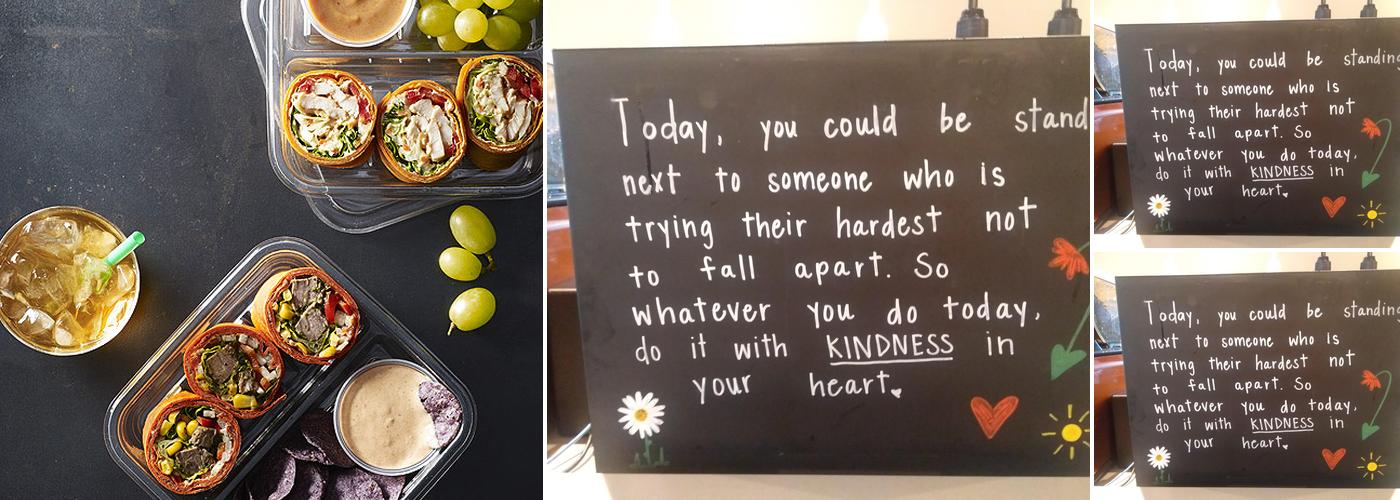 Today, you could be stand
next to someone who is
trying their hardest not
to fall apart. So
whatever you do today,
do it with KINDNESS in
your heart
Today, you could be standing
next to someone who is
trying their hardest not
to fall apart. So
whatever you do today,
do it with KINDNESS in
your heart
Today, you could be standing
next to someone who is
trying their hardest not
to fall apart. So
whatever you do today,
do it with KINDNESS in
your heart